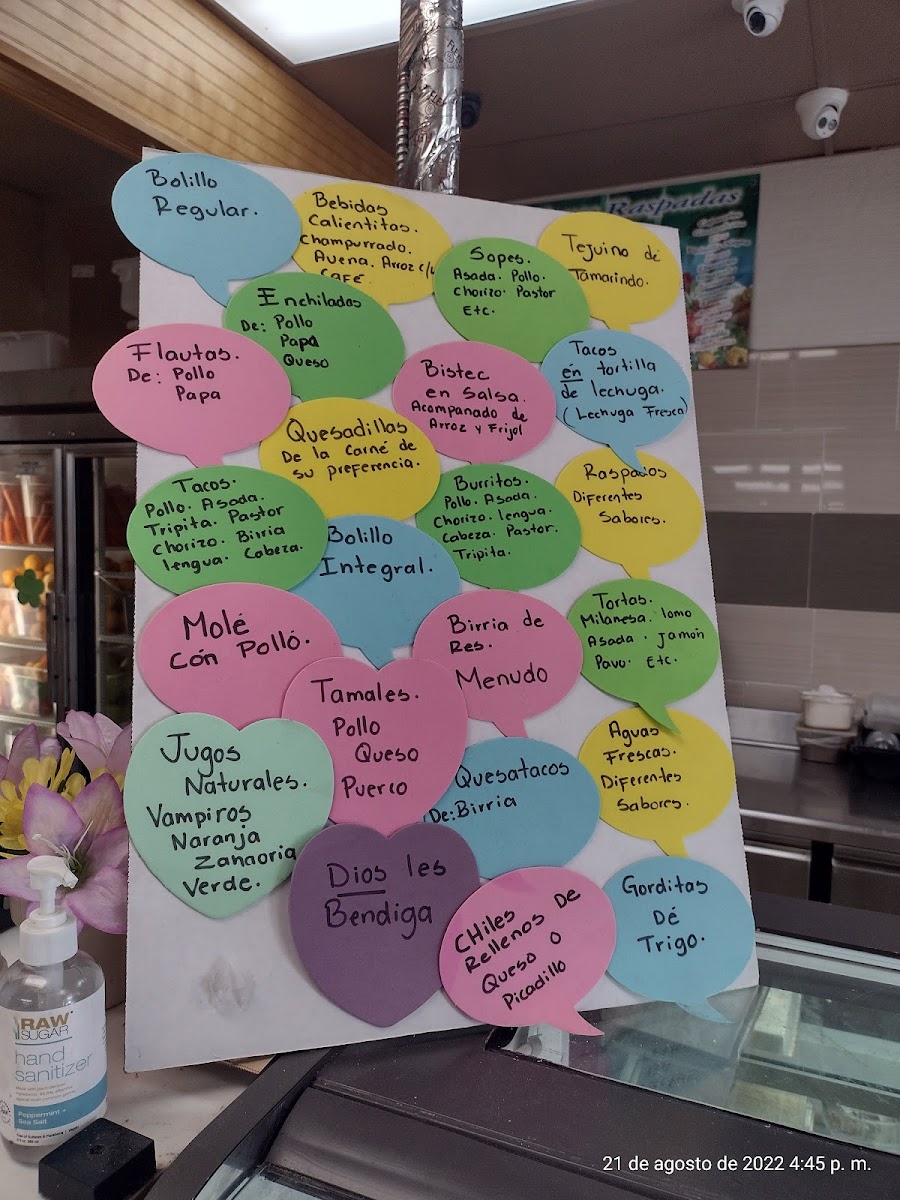 Bolillo
Regular.
Bebidas
Calientitas.
Champurrado.
Avena. Arroz c/
CAFÉ.
Sopes.
Asada. Pollo.
Chorizo. Pastor
Etc.
Tejuino dé
Tamarindo.
Raspadas
Enchiladas
De: Pollo
Papa
Queso
Flautas.
De: Pollo
Papa
Bistec
en Salsa.
Acompanado de
Arroz y Frijol
Tacos
en tortilla
de lechuga.
(Lechuga Fresca)
Quesadillas
De la Carné de
su preferencia.
Tacos.
Pollo. Asada.
Tripita. Pastor
Chorizo. Birria
lengua. Cabeza.
Burritos.
Pollo. Asada.
Chorizo. lengua.
Cabeza. Pastor.
Tripita.
Raspados
Diferentes
Sabores.
Bolillo
Integral.
Molé
Cón Polló.
Birria de
Res.
Menudo
Tortas.
Milanesa. lomo
Asada. jamón
Pavo. Etc.
Tamales.
Pollo
Queso
Puerco
Jugos
Naturales.
Vampiros
Naranja
Zanaoria
Verde.
Quesatacos
De: Birria
Aguas
Frescas.
Diferentes
Sabores.
Dios les
Bendiga
CHiles
Rellenos De
Queso o
Picadillo
Gorditas
Dé
Trigo.
RAW
SUGAR
hand
sanitizer
Peppermint +
Sea Salt
21 de agosto de 2022 4:45 p. m.